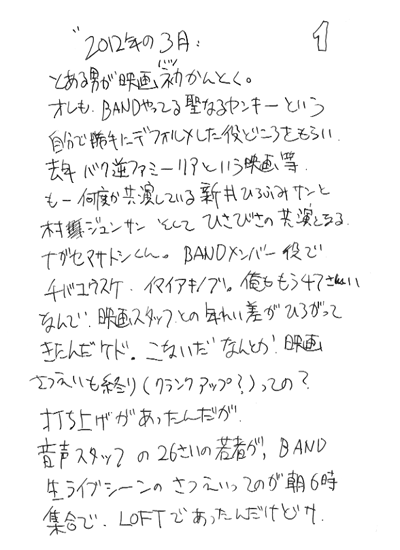 1
"2012年の3月:
とある男が映画初かんとく。
オレも、BANDやってる聖なるヤンキーという
自分で勝手にデフォルメした役どころをもらい、
去年 バク逆ファミーリアという映画等
も一何度か共演している新井ひろふみサンと
村上ジュンサン そして ひさびさの共演となる
ナガセマサトシくん。BANDメンバー役で
チバユウスケ、イマイアキノブ。俺ももう47さい
なんで、映画スタッフとの年れい差がひろがって
きたんだケド。こないだ なんとか 映画
さつえいも終り(クランクアップ?)っての?
打ち上げがあったんだが、
音声スタッフの26さいの若者が、BAND
生ライブシーンのさつえいってのが朝6時
集合で、LOFTであったんだけどサ、